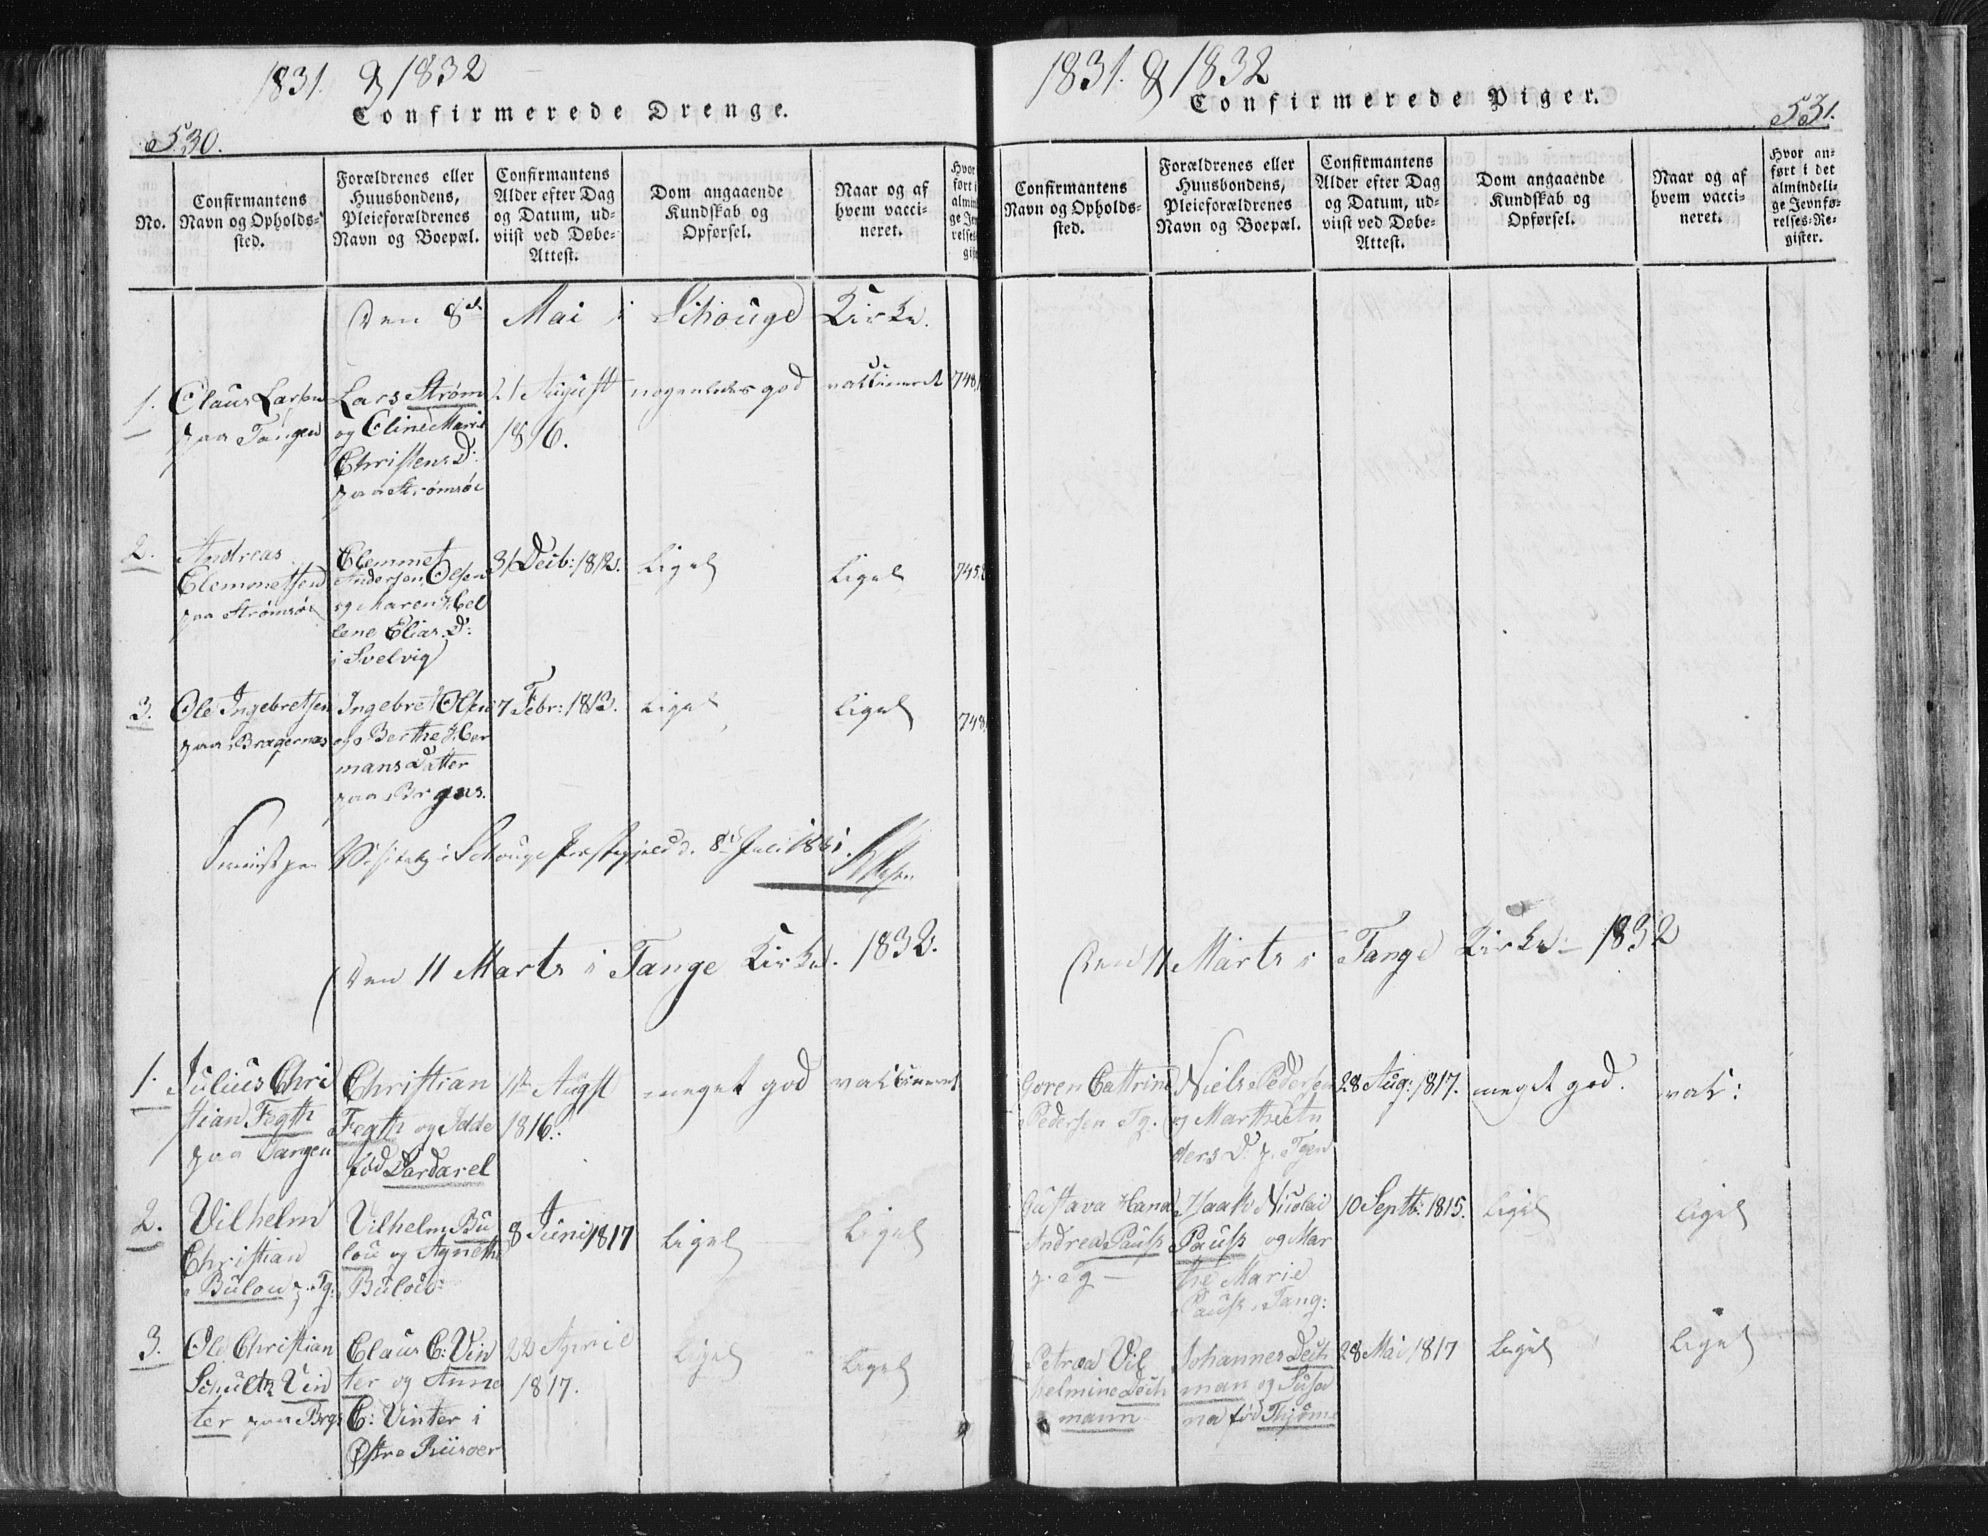 1831. & 1832
Confirmerede Drenge.
530.
No.
Confirmantens
Navn og Opholds-
sted.
Forældrenes eller
Huusbondens,
Pleieforældrenes
Navn og Boepæl.
Confirmantens
Alder efter Dag
og Datum, ud-
viist ved Døbe-
Attest.
Dom angaaende
Kundskab og
Opførsel.
Naar og af
hvem vacci-
neret.
Den 8de Mai i Schouge Kirke.
1.
Claus Larsen
paa Tangen
Lars Strøm
og Eline Marie
Christens D:
paa Strømsøe
21 August
1816.
nogenledes god
vaccineret
748
2.
Andreas
Clemmetsen
paa Strømsøe
Clemmet
Andersen Olsen
og Maren Hel
lene Elias D:
i Svelvig
31 Decb: 1812.
Ligel
Ligel
745
3.
Ole Ingebretsen
paa Bragernæs
Ingebret Olsen
og Berthe Her
mans Datter
paa Brgnes.
7 Febr: 1813.
Ligel
Ligel
748
Visitatz i Schouge Præstegjeld d. 8de Juli 1831.
Den 11 Marts i Tange Kirke. 1832.
1.
Julius Chri
stian Fegth
paa Tangen
Christian
Fegth og Idde
fød Dardarel
1ste Augst
1816.
meget god
vaccineret
2.
Vilhelm
Christian
Bülou p. Tg:
Vilhelm Bü
lou og Agnethe
Bülou
8 Juni 1817
Ligel
Ligel
3.
Ole Christian
Schultz Vin
ter paa Brgs
Claus C: Vin
ter og Anne
C: Vinter i
Østre Riisøer
22 April
1817.
Ligel
Ligel
1831. & 1832
Confirmerede Piger.
531.
Confirmantens
Navn og Opholds-
sted.
Forældrenes eller
Huusbondens,
Pleieforældrenes
Navn og Boepæl.
Confirmantens
Alder efter Dag
og Datum, ud-
viist ved Døbe-
Attest.
Dom angaaende
Kundskab og
Opførsel.
Naar og af
hvem vacci-
neret.
Hvor an-
ført i det
almindeli-
ge Jevnfø-
relses-Re-
gister.
Den 11 Marts i Tange Kirke 1832
Goren Cattrine
Pedersen Tg.
Niels Pedersen
og Marthe An
ders D: p. Tgen
28 Aug: 1817.
meget god.
vac:
Gustava Hana
Andrea Pauss
p. Tg
Haask Nicolai
Pauss og Mar
the Marie
Pauss, Tang:
10 Septb: 1815.
Ligel
Ligel
Petrea Vil
helmine Deich
mann
Johannes Deich
man og Susa
na fød Thjøme
28 Mai 1817
Ligel
Ligel